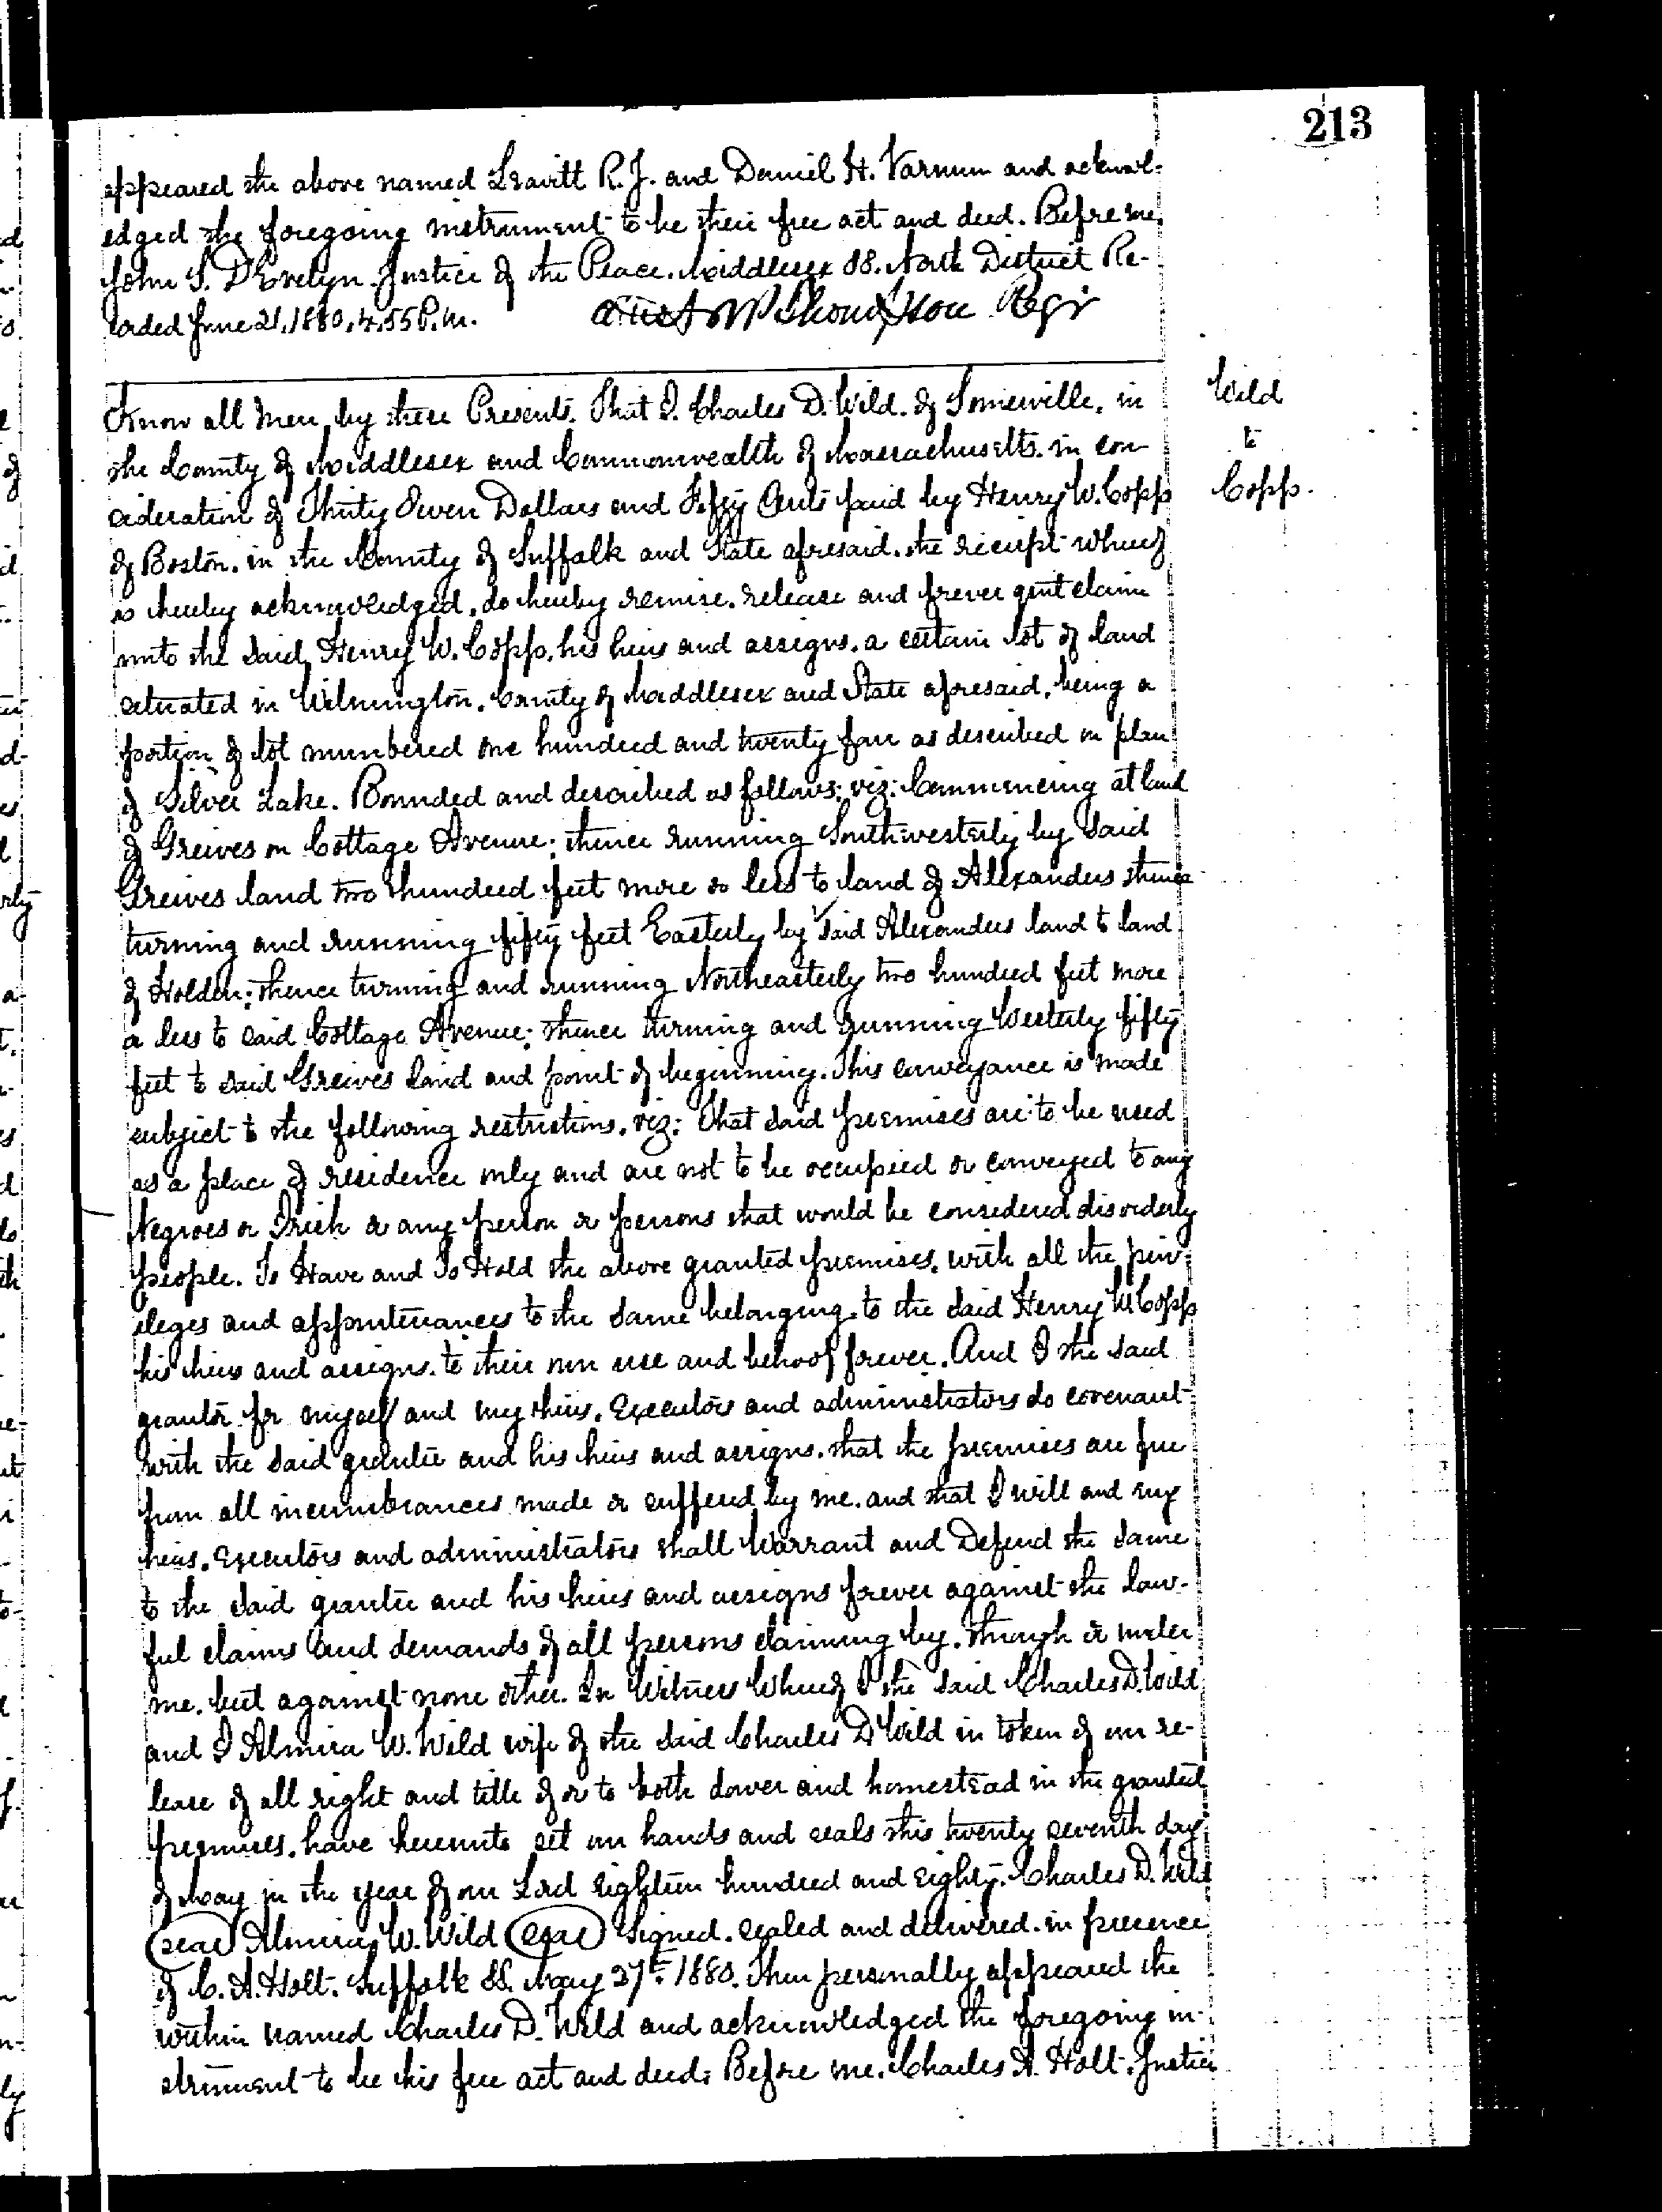 213
appeared the above named Leavitt R. J. and Daniel H. Varnum and acknowl-
edged the foregoing instrument to be their free act and deed. Before me,
John S. D'Evelyn. Justice of the Peace. Middlesex SS. North District Re-
corded June 21, 1880, 4.55 P.M. Attest Thompson Regr
Wild
to
Copp.
Know all Men by these Presents. That I. Charles D. Wild. of Somerville, in
the County of Middlesex and Commonwealth of Massachusetts. in con-
sideration of Thirty Seven Dollars and Fifty Cents paid by Henry W. Copp
of Boston. in the County of Suffolk and State aforesaid. the receipt whereof
is hereby acknowledged, do hereby remise. release and forever quit claim
unto the said Henry W. Copp, his heirs and assigns. a certain lot of land
situated in Wilmington. County of Middlesex and State aforesaid, being a
portion of lot numbered one hundred and twenty four as described on plan
of Silver Lake. Bounded and described as follows: viz: Commencing at land
of Greives on Cottage Avenue; thence running Southwesterly by said
Greives land two hundred feet more or less to land of Alexanders thence
turning and running fifty feet Easterly by said Alexanders land to land
of Holden; thence turning and running Northeasterly two hundred feet more
or less to said Cottage Avenue; thence turning and running Westerly fifty
feet to said Greives land and point of beginning. This conveyance is made
subject to the following restrictions. viz: That said premises are to be used
as a place of residence only and are not to be occupied or conveyed to any
Negroes or Irish or any person or persons that would be considered disorderly
people. To Have and To Hold the above granted premises, with all the priv-
ileges and appurtenances to the same belonging. to the said Henry W. Copp
his heirs and assigns. to their own use and behoof forever. And I the said
grantor for myself and my heirs. Executors and administrators do covenant
with the said grantee and his heirs and assigns. that the premises are free
from all incumbrances made or suffered by me. and that I will and my
heirs. Executors and administrators shall Warrant and Defend the same
to the said grantee and his heirs and assigns forever against the law-
ful claims and demands of all persons claiming by. through or under
me. but against none other. In Witness Whereof I the said Charles D. Wild
and I Almira W. Wild wife of the said Charles D Wild in token of our re-
lease of all right and title of or to both dower and homestead in the granted
premises. have hereunto set our hands and seals this twenty seventh day
of May in the year of our Lord Eighteen hundred and Eighty. Charles D. Wild
(seal) Almira W. Wild (seal) Signed. sealed and delivered. in presence
of C. A. Holt. Suffolk SS. May 27th. 1880. Then personally appeared the
within named Charles D. Wild and acknowledged the foregoing in-
strument to be his free act and deed: Before me. Charles A. Holt. Justice